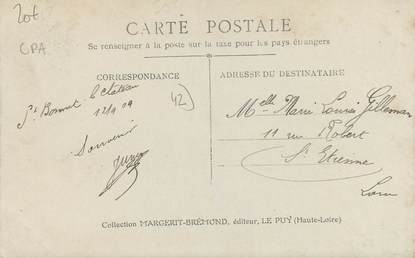 20€
CPA
CARTE POSTALE
Se renseigner à la poste sur la taxe pour les pays étrangers
CORRESPONDANCE
St Bonnet le Château
12/9 09
Souvenir
42
ADRESSE DU DESTINATAIRE
Melle Marie Louise Gilleman
11 rue Robert
St Etienne
Loire
Collection MARGERIT-BRÉMOND, éditeur, LE PUY (Haute-Loire)